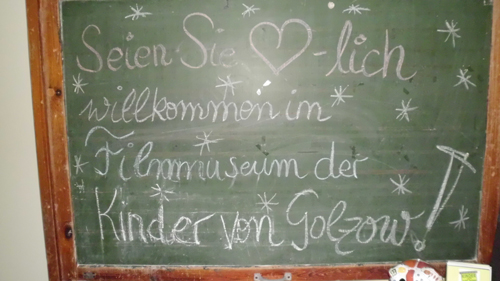 Seien Sie ♡-lich
willkommen in
Filmmuseum der
Kinder von Golzow!